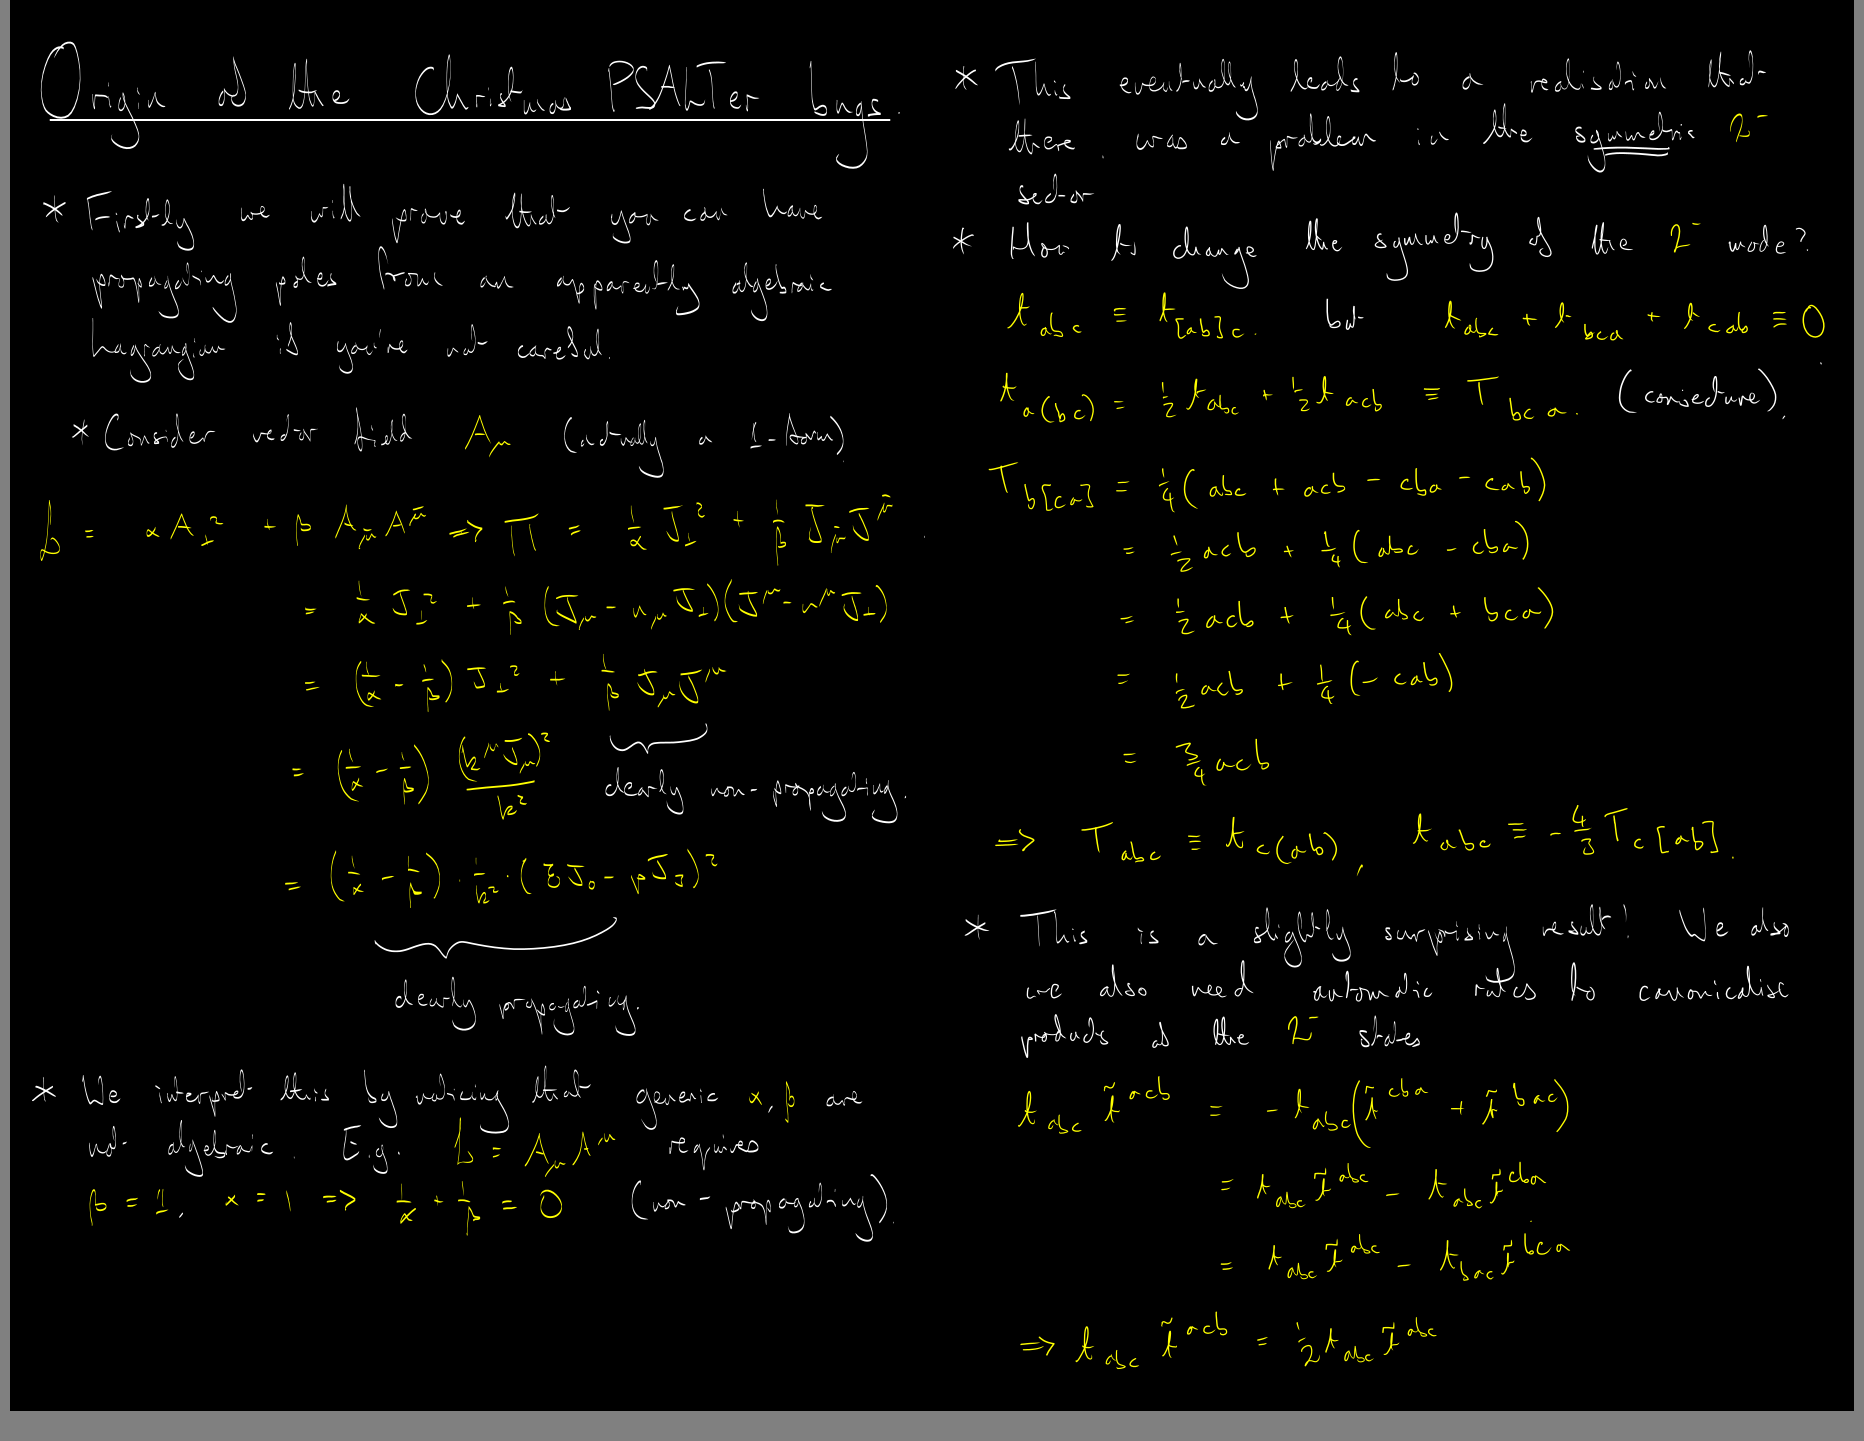 Origin of the Christmas PSALTer bugs.
* Firstly we will prove that you can have
propagating poles from an apparently algebraic
Lagrangian if you're not careful.
* Consider vector field A_μ (actually a 1-form)
L = αA_⊥² + β A_μ̄ A^μ̄ => Π = 1/α J_⊥² + 1/β J_μ̄ J^μ̄
= 1/α J_⊥² + 1/β (J_μ - n_μ J_⊥)(J^μ - n^μ J_⊥)
= (1/α - 1/β) J_⊥² + 1/β J_μ J^μ
= (1/α - 1/β) (k^μ J_μ)²/k² clearly non-propagating.
= (1/α - 1/β) · 1/k² · (ℰJ₀ - pJ₃)²
clearly propagating.
* We interpret this by noticing that generic α, β are
not algebraic. E.g. L = A_μ A^μ requires
β = 1, α = 1 => 1/α + 1/β = 0 (non-propagating).
* This eventually leads to a realisation that
there was a problem in the symmetric 2⁻
sector
* How to change the symmetry of the 2⁻ mode?
t_abc ≡ t_[ab]c. but t_abc + t_bca + t_cab ≡ 0
t_a(bc) = ½ t_abc + ½ t_acb ≡ T_bca. (conjecture).
T_b[ca] = ¼(abc + acb - cba - cab)
= ½ acb + ¼(abc - cba)
= ½ acb + ¼(abc + bca)
= ½ acb + ¼(- cab)
= ¾ acb
=> T_abc ≡ t_c(ab), t_abc ≡ -4/3 T_c[ab].
* This is a slightly surprising result! We also
we also need automatic rules to canonicalise
products of the 2⁻ states
t_abc t̃^acb = - t_abc(t̃^cba + t̃^bac)
= t_abc t̃^abc - t_abc t̃^cba
= t_abc t̃^abc - t_bac t̃^bca
=> t_abc t̃^acb = ½ t_abc t̃^abc